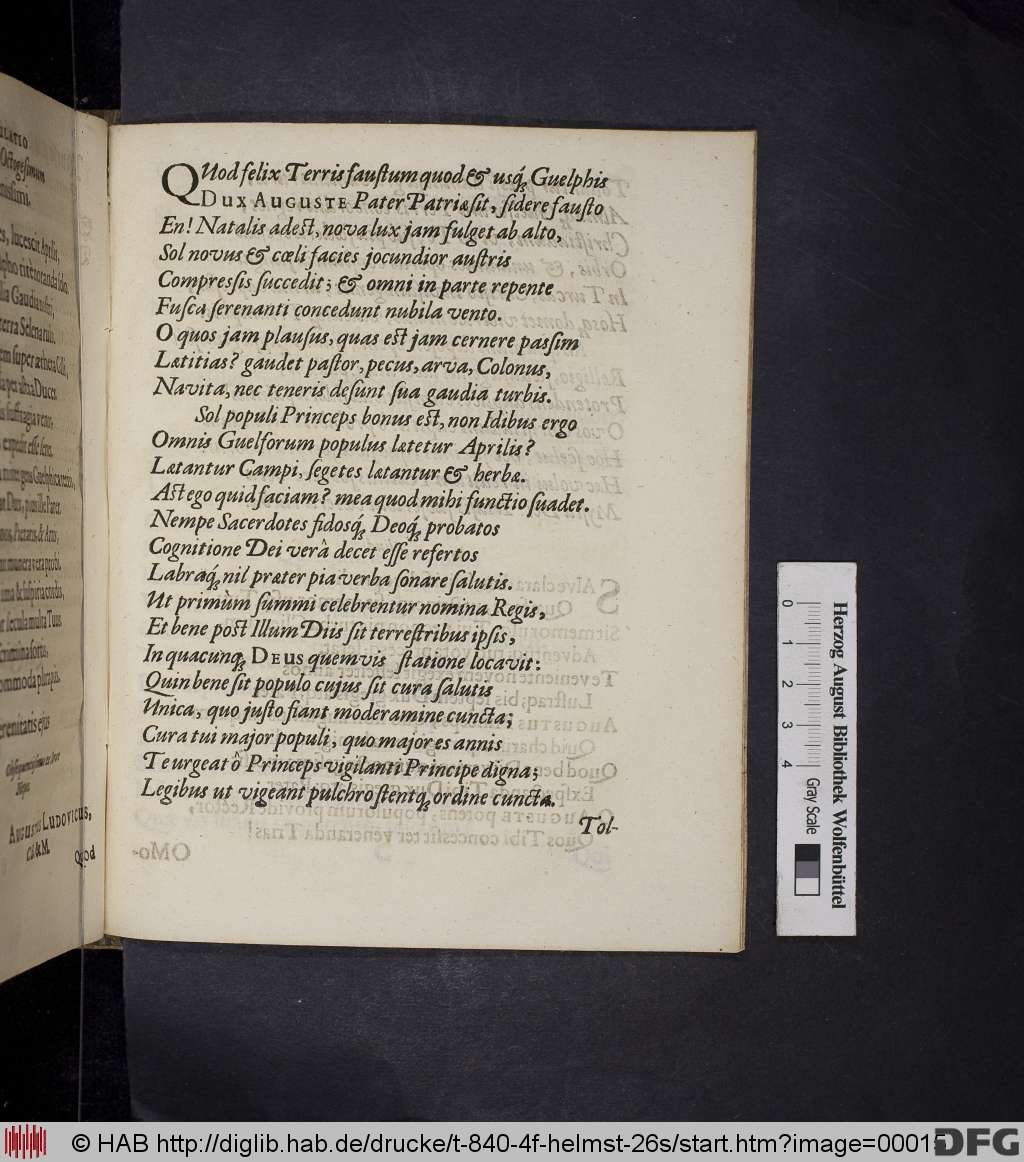 QUod felix Terris faustum quod & usq́; Guelphis
DUX AUGUSTE Pater Patriæ sit, sidere fausto
En! Natalis adest, nova lux jam fulget ab alto,
Sol novus & cœli facies jocundior austris
Compressis succedit; & omni in parte repente
Fusca serenanti concedunt nubila vento.
O quos jam plausus, quas est jam cernere passim
Lætitias? gaudet pastor, pecus, arva, Colonus,
Navita, nec teneris desunt sua gaudia turbis.
Sol populi Princeps bonus est, non Idibus ergo
Omnis Guelforum populus lætetur Aprilis?
Lætantur Campi, segetes lætantur & herbæ.
Ast ego quid faciam? mea quod mihi functio suadet.
Nempe Sacerdotes fidosq́; Deoq́; probatos
Cognitione Dei verâ decet esse refertos
Labraq́; nil præter pia verba sonare salutis.
Ut primùm summi celebrentur nomina Regis,
Et bene post Illum Diis sit terrestribus ipsis,
In quacunq; DEUS quemvis statione locavit:
Quin bene sit populo cujus sit cura salutis
Unica, quo justo fiant moderamine cuncta;
Cura tui major populi, quo major es annis
Te urgeat ô Princeps vigilanti Principe digna;
Legibus ut vigeant pulchro stentq; ordine cuncta.
Tol-
Augustus Ludovicus,
Quod
Herzog August Bibliothek Wolfenbüttel
0 1 2 3 4
Gray Scale
© HAB http://diglib.hab.de/drucke/t-840-4f-helmst-26s/start.htm?image=00015
DFG